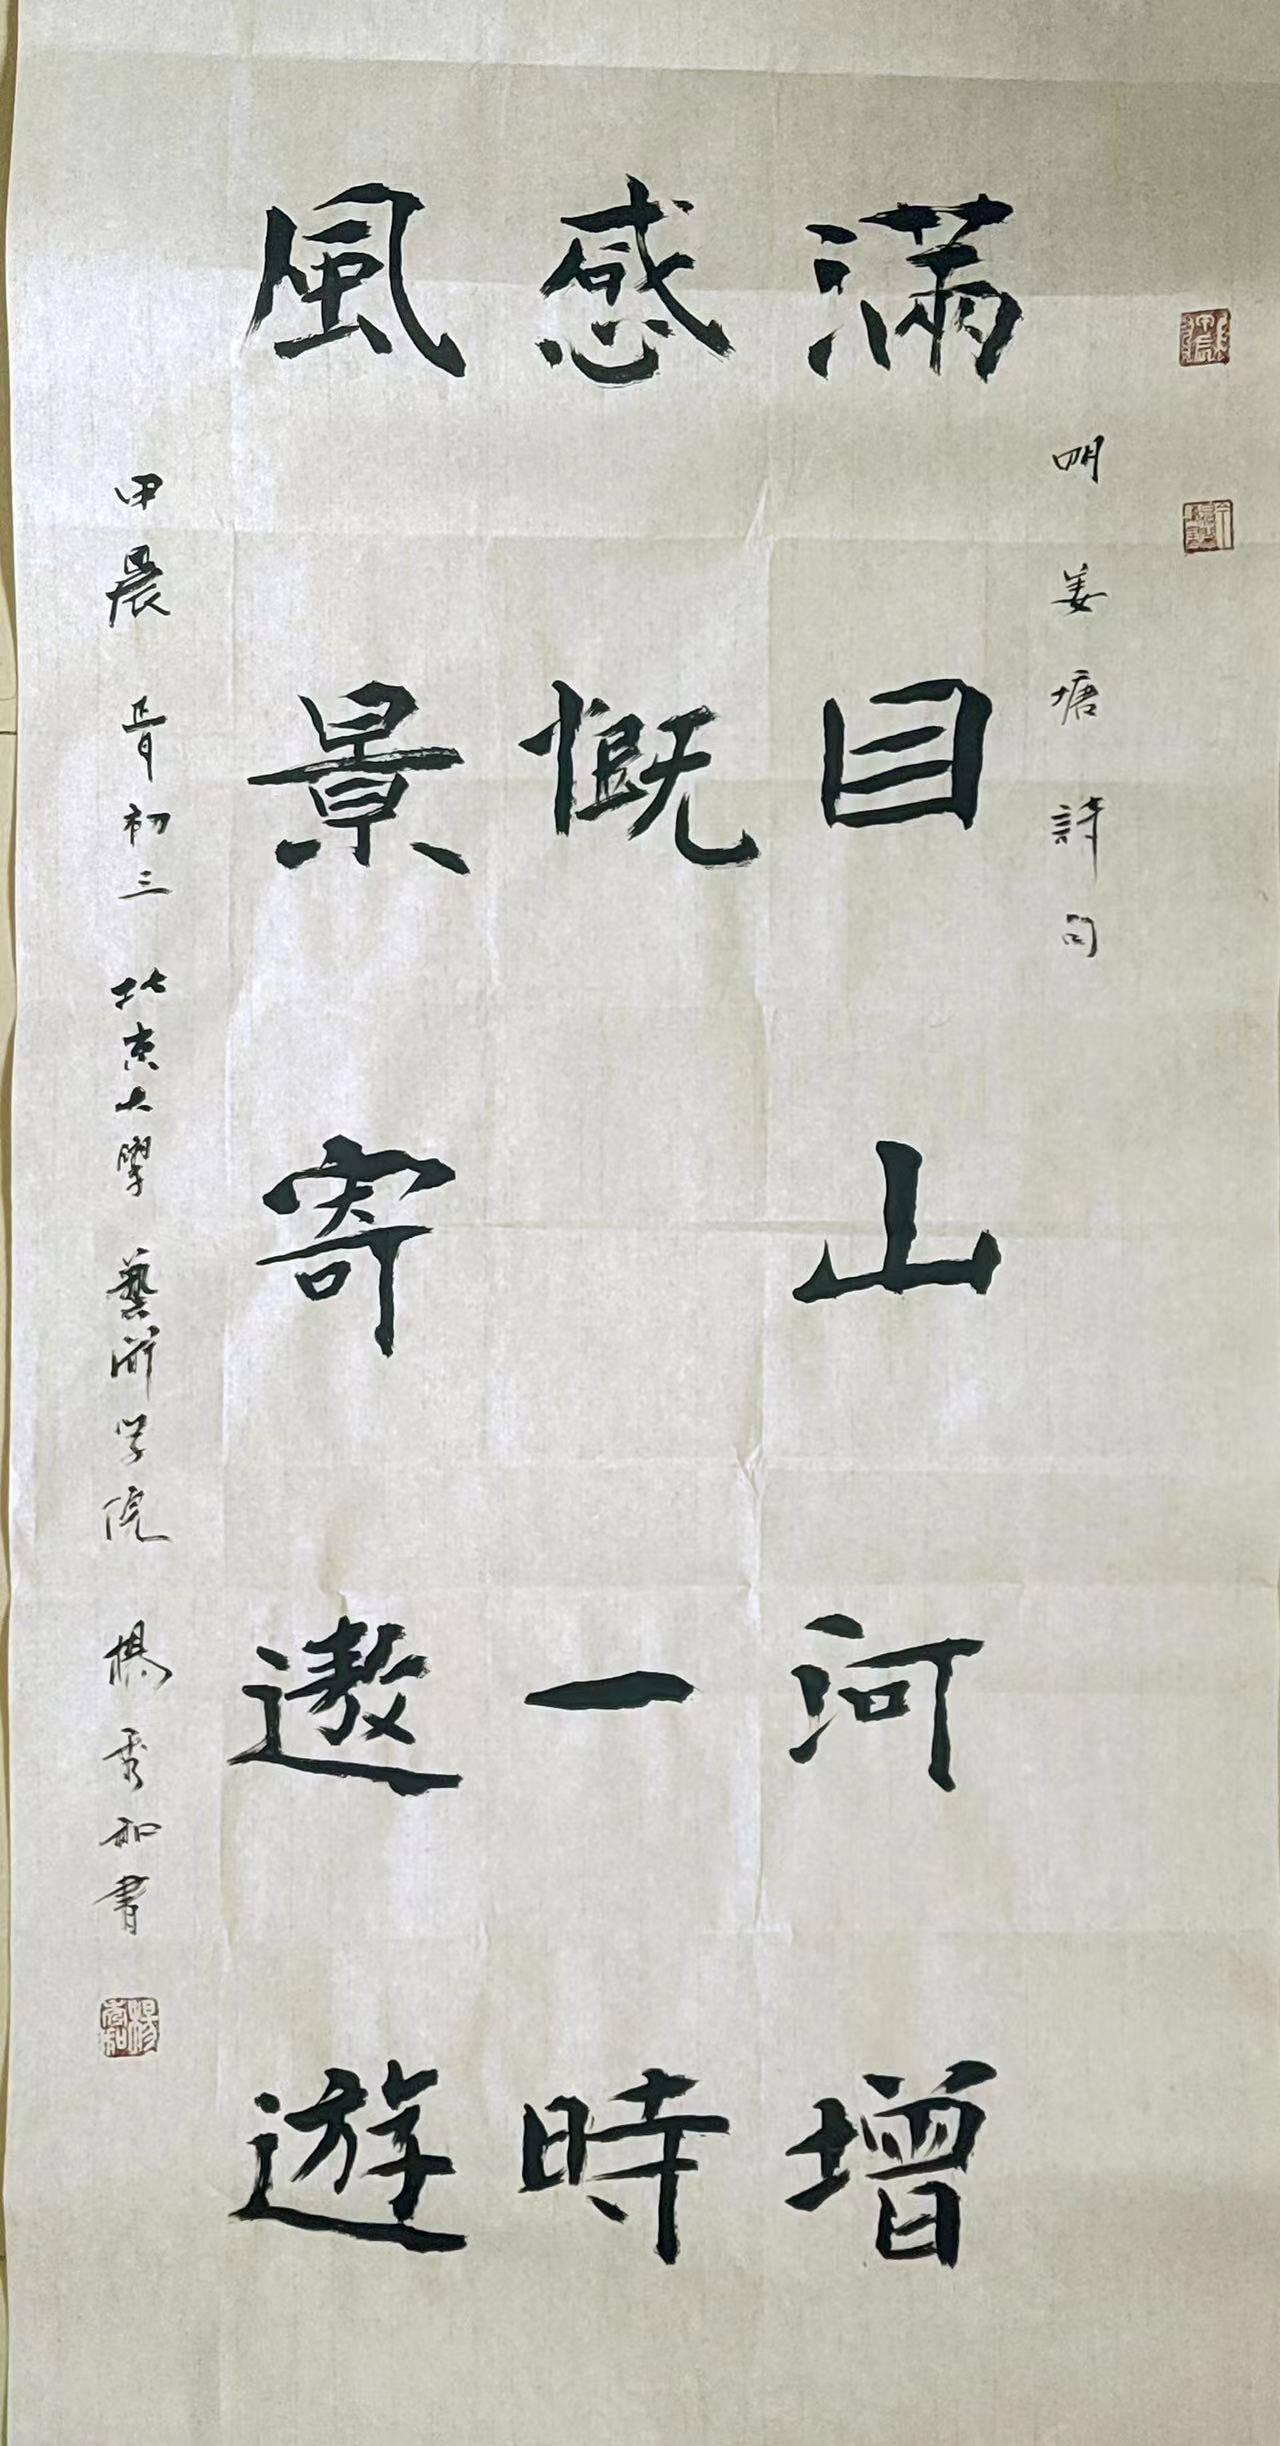 明姜塘詩句
滿目山河增
感慨一時
風景寄遨遊
甲晨正月初三北京大學藝術学院楊秀和書